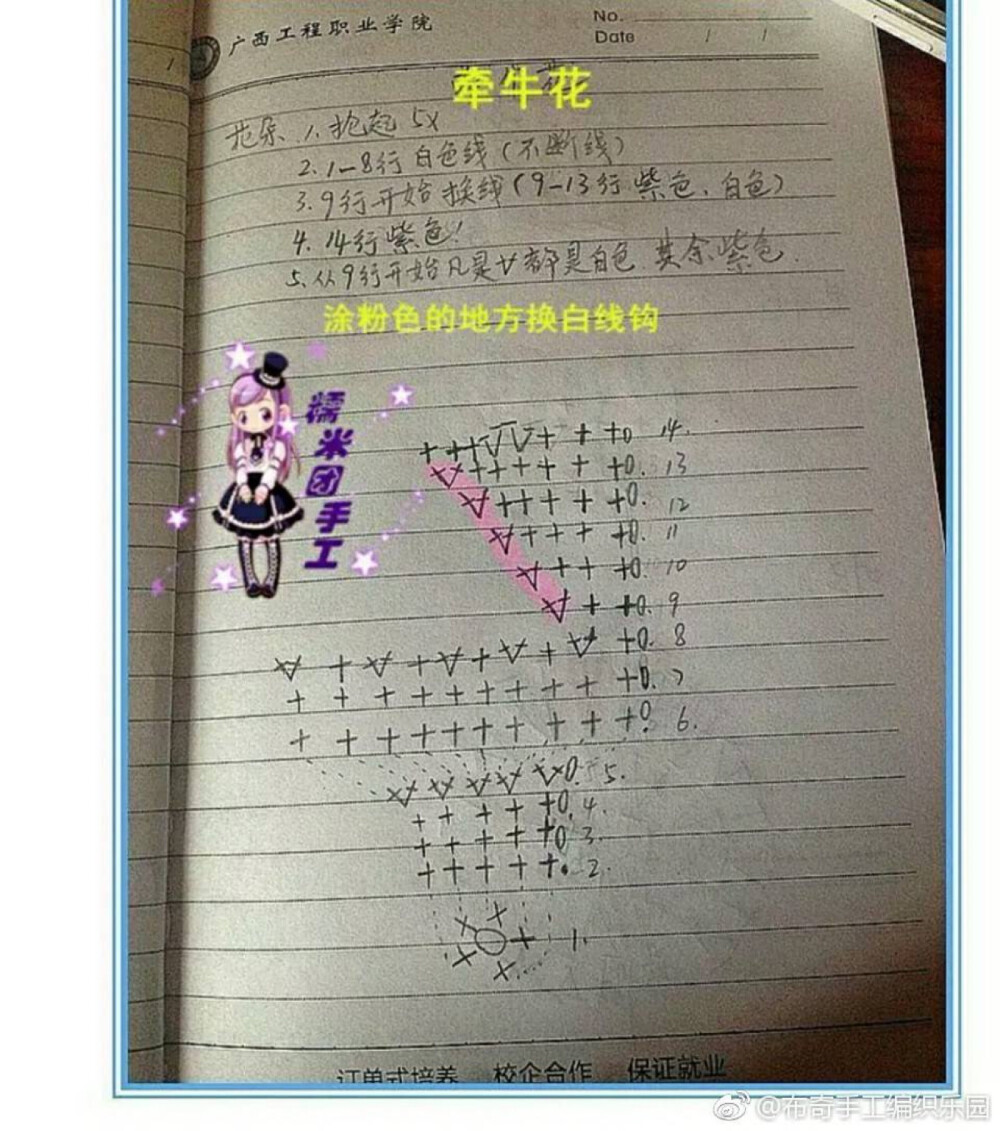 广西工程职业学院
No.
Date / /
牵牛花
花朵. 1. 抱起 5X
2. 1-8行 白色线(不断线)
3. 9行开始 换线(9-13行 紫色、白色)
4. 14行紫色!
5. 从9行开始凡是V都是白色. 其余紫色.
涂粉色的地方换白线钩
糯米团手工
14.
13
12
11
10
9
8
7
6.
5.
4.
3.
2.
1.
订单式培养 校企合作 保证就业
@布奇手工编织乐园